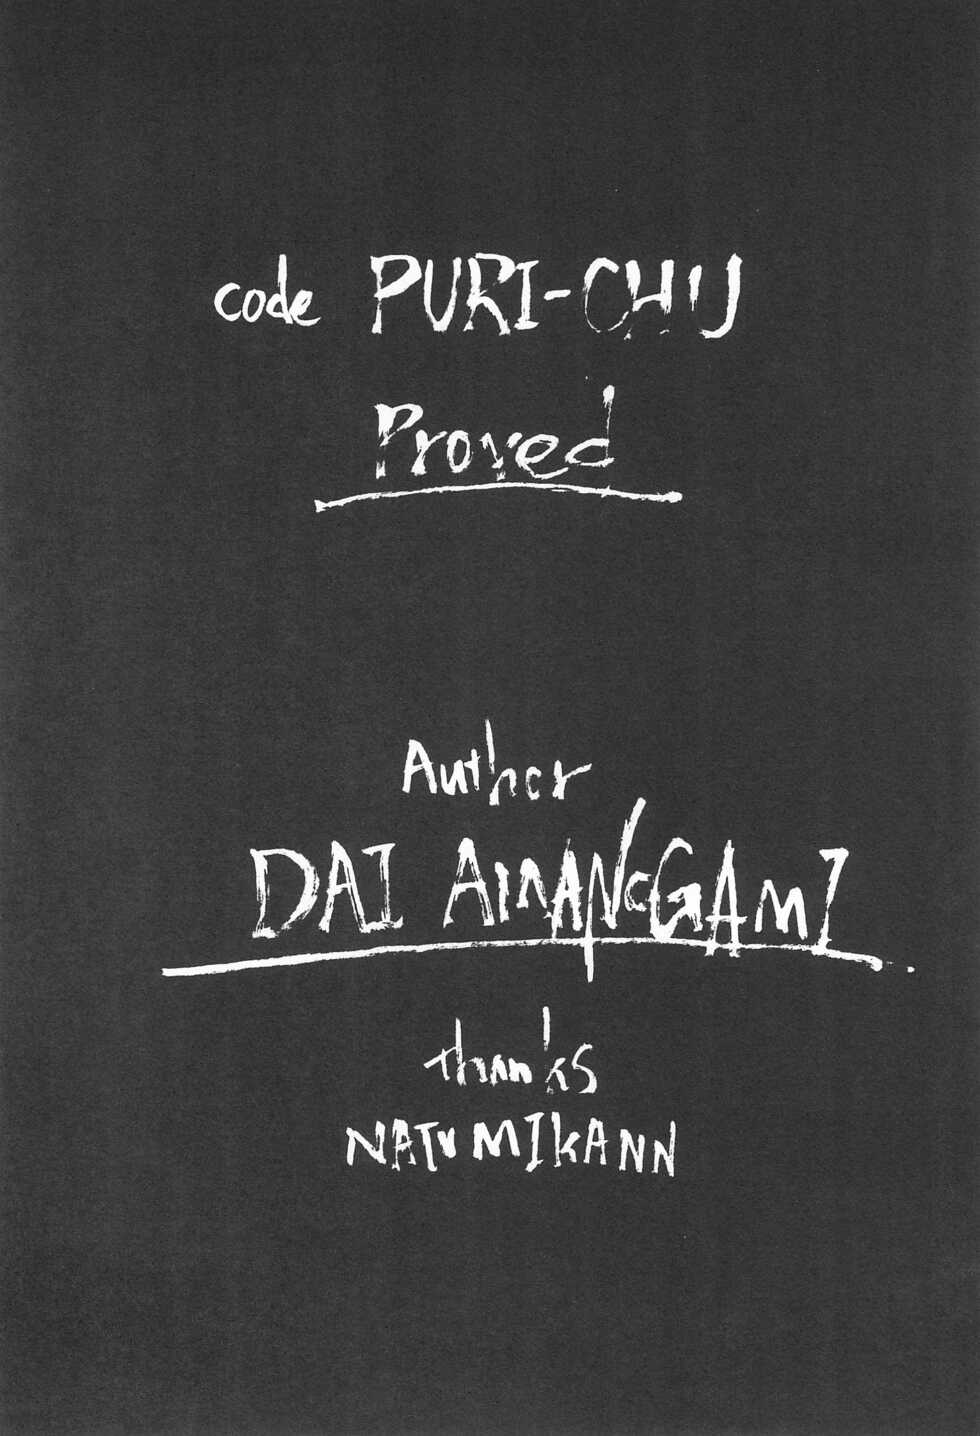 code PURI-CHU
Proved
Author
DAI AMANOGAMI
thanks
NATUMIKANN